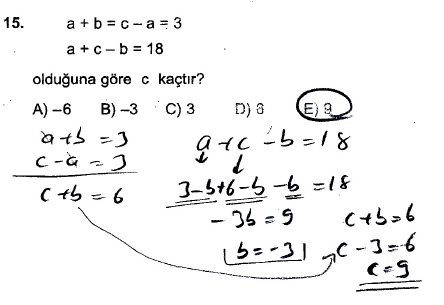 15. a + b = c – a = 3
a + c – b = 18
olduğuna göre c kaçtır?
A) –6 B) –3 C) 3 D) 6 E) 9
a+b = 3
c-a = 3
c+b = 6
a+c-b=18
3-b+6-b-b=18
-3b=9
b=-3
c+b=6
c-3=6
c=9